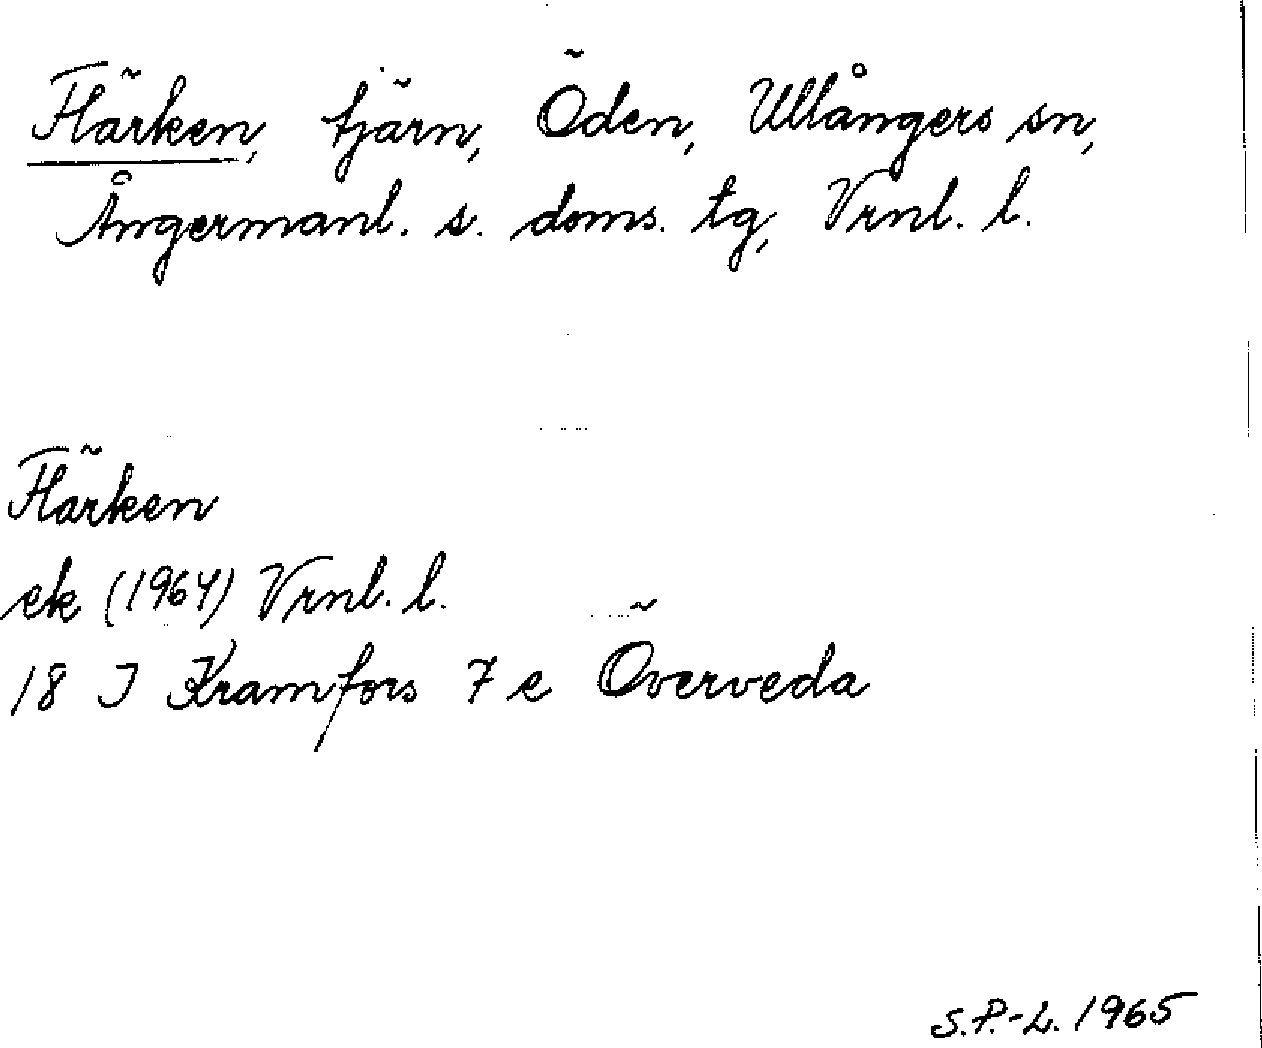 Flärken, tjärn, Öden, Ullångers sn,
Ångermanl. s. doms. tg, Vrnl. l.
Flärken
ek (1964) Vrnl. l.
18 J Kramfors 7 e Överveda
S.P.-L. 1965